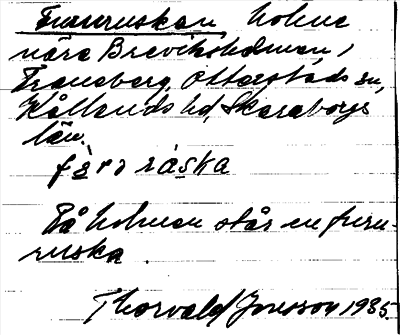 Fururuskan, holme
nära Breviksholmen,
Traneberg, Otterstads sn,
Kållands hd, Skaraborgs
län.
På holmen står en furu-
ruska.
Thorvald Jonsson 1935